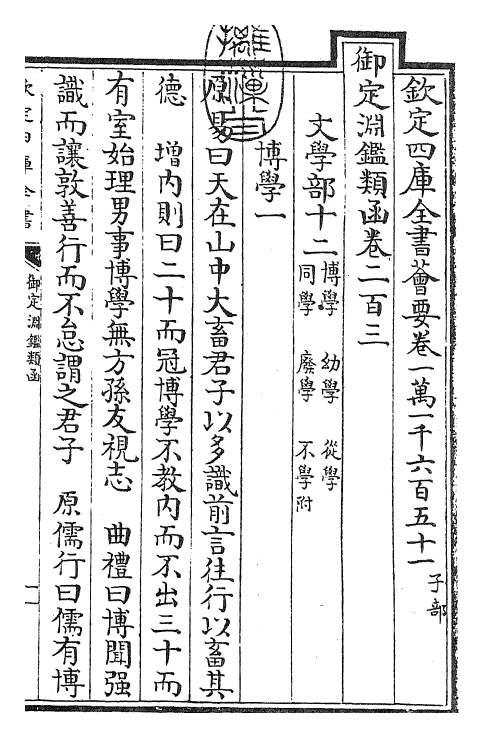 欽定四庫全書薈要卷一萬一千六百五十一 子部
御定淵鑑類函卷二百三
文學部十二 博學 幼學 從學
同學 廢學 不學附
博學一
原易曰天在山中大畜君子以多識前言往行以畜其
德 增內則曰二十而冠博學不教內而不出三十而
有室始理男事博學無方孫友視志 曲禮曰博聞强
識而讓敦善行而不怠謂之君子 原儒行曰儒有博
欽定四庫全書
御定淵鑑類函
一